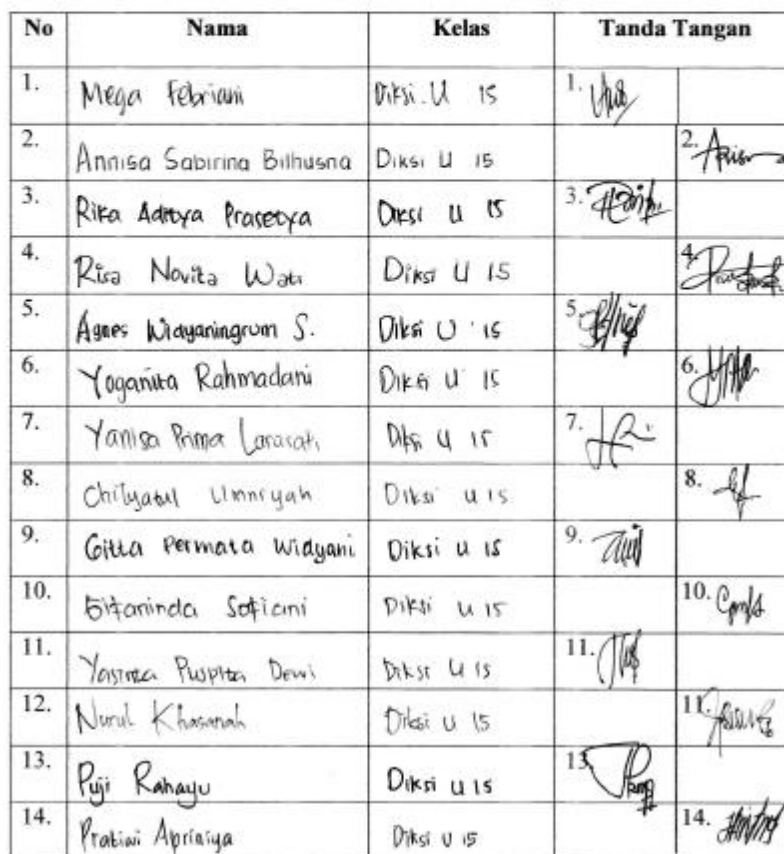 No Nama Kelas Tanda Tangan
1. Mega Febriani Diksi U 15 1.
2. Annisa Sabirina Bilhusna Diksi U 15 2.
3. Rika Aditya Prasetya Diksi U 15 3.
4. Risa Novita Wati Diksi U 15 4.
5. Agnes Widyaningrum S. Diksi U 15 5.
6. Yoganita Rahmadani Diksi U 15 6.
7. Yanisa Prima Larasati Diksi U 15 7.
8. Chilyatul Ummiyah Diksi U 15 8.
9. Gitta Permata Widyani Diksi U 15 9.
10. Sofiani Diksi U 15 10.
11. Yasinta Puspita Dewi Diksi U 15 11.
12. Nurul Khasanah Diksi U 15 11.
13. Puji Rahayu Diksi U 15 13.
14. Pratiwi Diksi U 15 14.